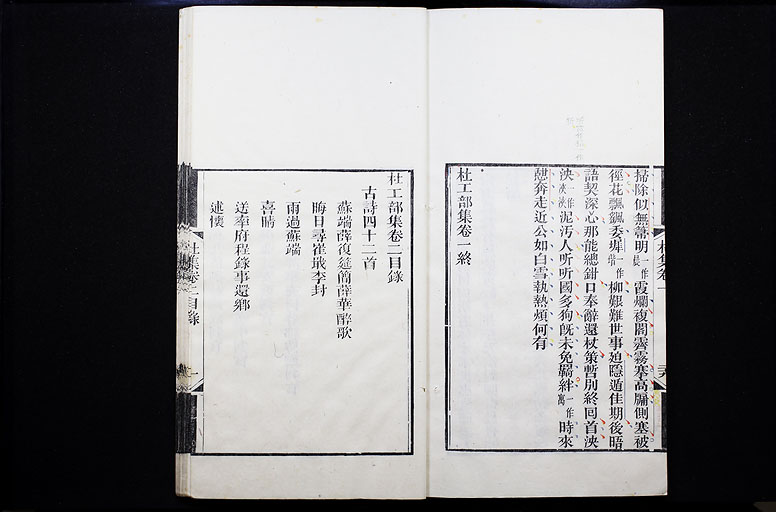 掃除似無帚明一作晨霞爛複閣霽霧塞高牖側塞被
徑花飄飄委墀一作堦柳艱難世事迫隱遁佳期後晤
語契深心那能總鉗口奉辭還杖策暫別終囘首泱
泱一作泱泱泥汚人听听國多狗旣未免羈絆一作寓時來
憩奔走近公如白雪執熱煩何有
杜工部集卷一終
杜集卷一
杜工部集卷二目錄
古詩四十二首
蘇端薛復筵簡薛華醉歌
晦日尋崔戢李封
雨過蘇端
喜晴
送率府程錄事還鄉
述懷
杜集卷二目錄
一